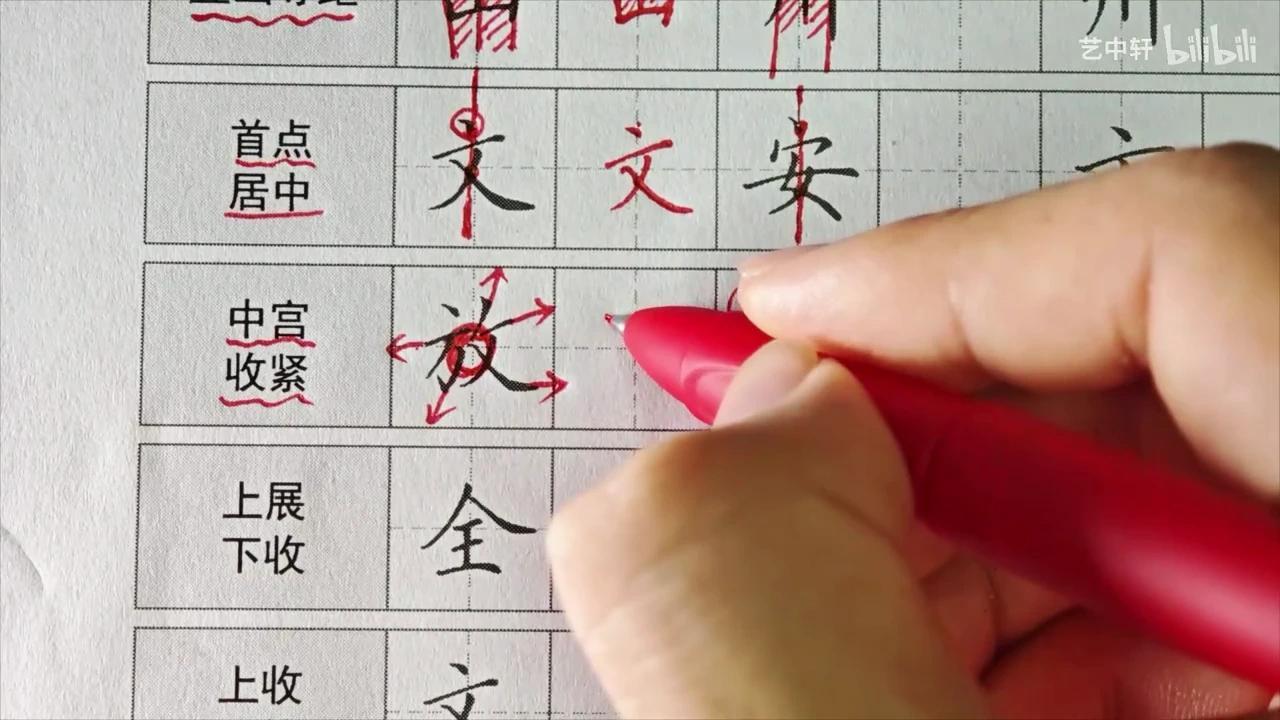 艺中轩 bilibili
首点
居中
文 文 安
中宫
收紧
放
上展
下收
全
上收